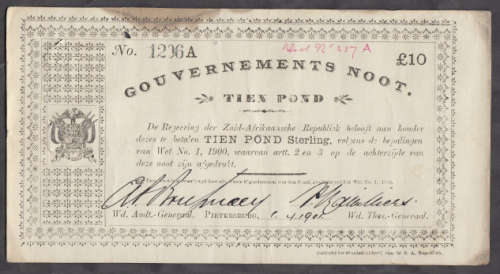 No. 1236A
£10
GOUVERNEMENTS NOOT.
TIEN POND
De Regeering der Zuid-Afrikaansche Republiek belooft aan houder
dezes te betalen TIEN POND Sterling, volgens de bepalingen
van Wet No. 1, 1900, waarvan artt. 2 en 3 op de achterzijde van
deze noot zijn afgedrukt.
Wd. Audt.-Generaal. PIETERSBURG, 1901 Wd. Thes.-Generaal.